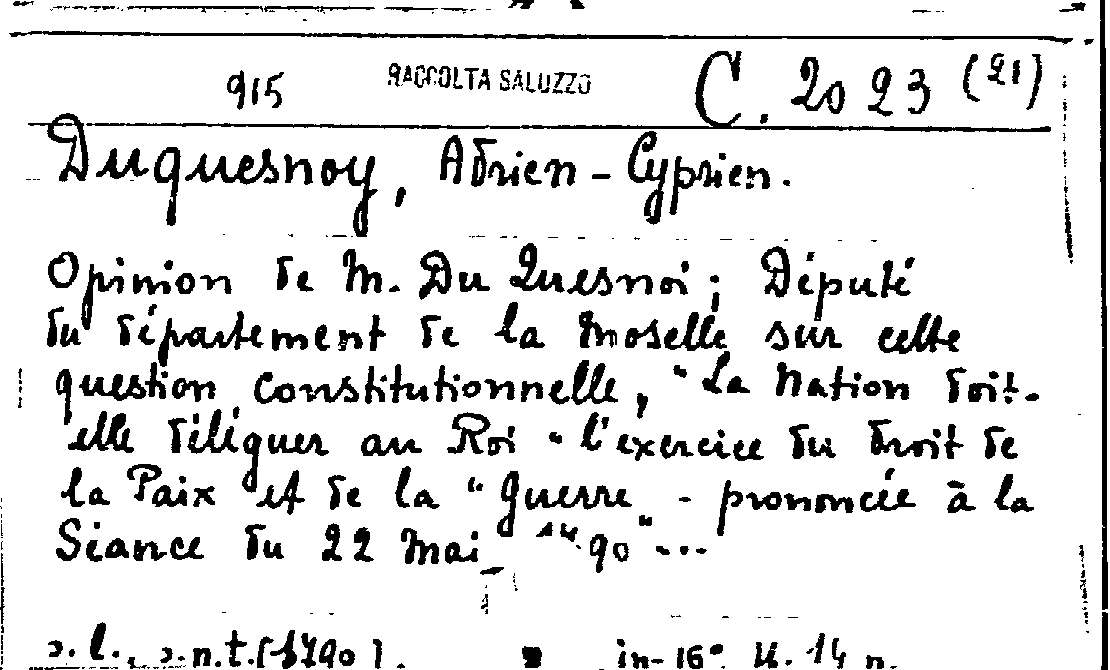 915 RACCOLTA SALUZZO C. 2023 (21)
Duquesnoy, Adrien-Cyprien.
Opinion de M. Du Quesnoi; Député
du département de la Moselle sur cette
question constitutionnelle, "La Nation doit-
elle déléguer au Roi "l'exercice du droit de
la Paix et de la "Guerre - prononcée à la
Séance du 22 Mai "90"...
s.l., s.n.t. [1790]. in-16°. 14 p.